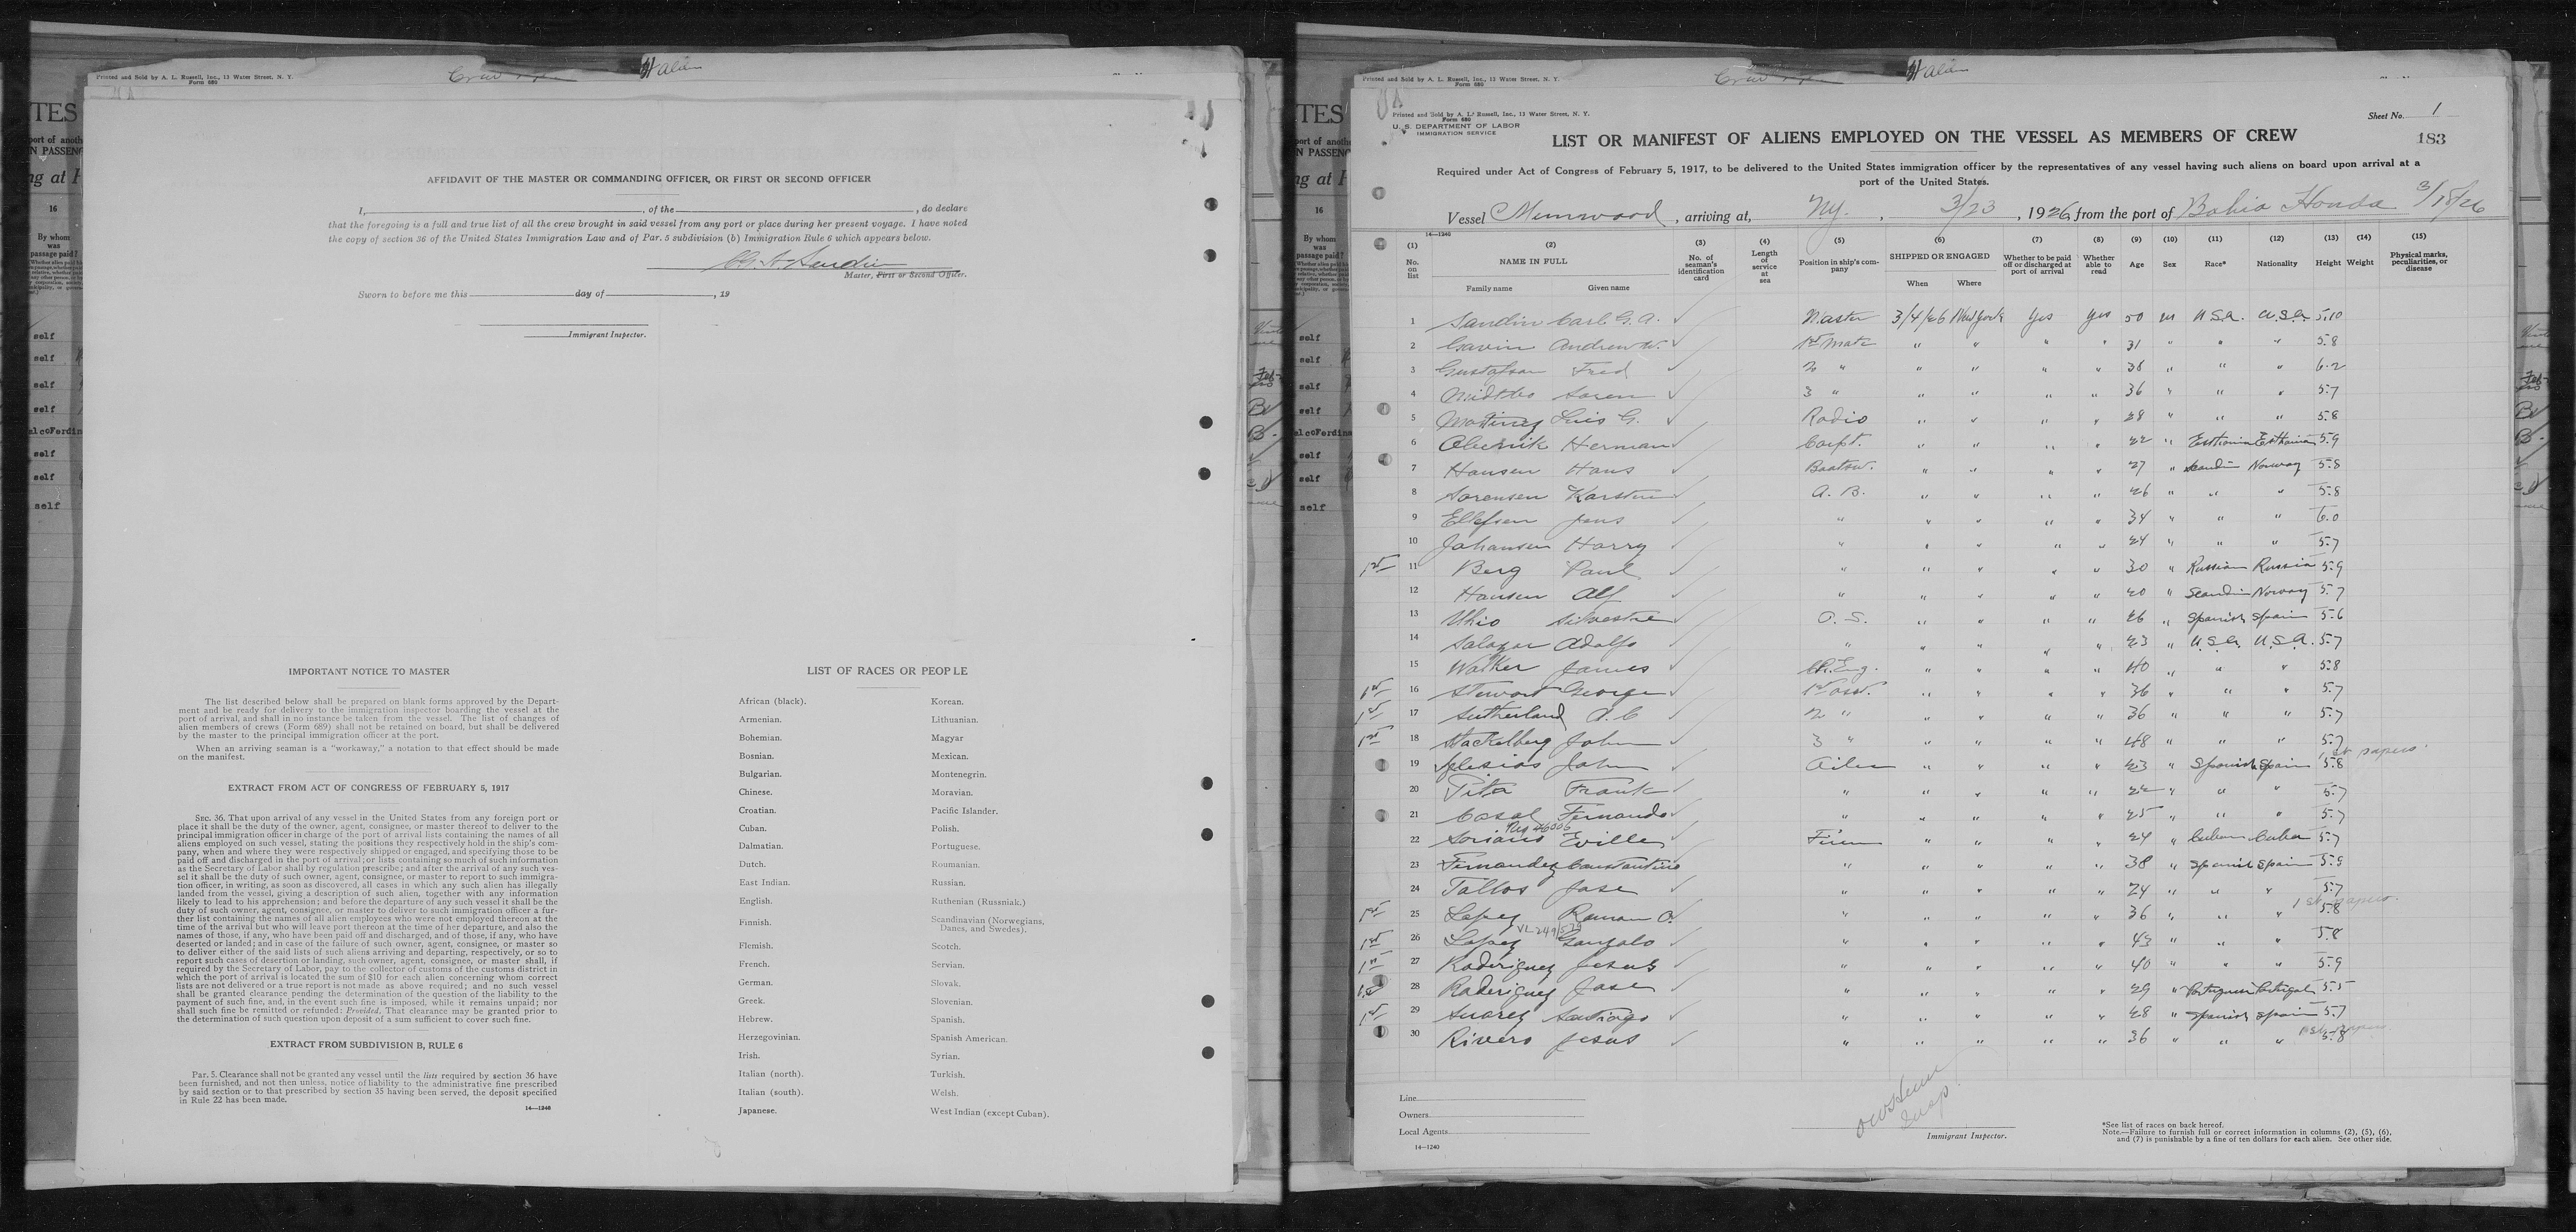 Printed and Sold by A. L. Russell, Inc., 13 Water Street, N. Y.
Form 680
AFFIDAVIT OF THE MASTER OR COMMANDING OFFICER, OR FIRST OR SECOND OFFICER
I, , of the , do declare
that the foregoing is a full and true list of all the crew brought in said vessel from any port or place during her present voyage. I have noted
the copy of section 36 of the United States Immigration Law and of Par. 5 subdivision (b) Immigration Rule 6 which appears below.
Master, First or Second Officer.
Sworn to before me this day of , 19
Immigrant Inspector.
IMPORTANT NOTICE TO MASTER
The list described below shall be prepared on blank forms approved by the Depart-
ment and be ready for delivery to the immigration inspector boarding the vessel at the
port of arrival, and shall in no instance be taken from the vessel. The list of changes of
alien members of crews (Form 689) shall not be retained on board, but shall be delivered
by the master to the principal immigration officer at the port.
When an arriving seaman is a "workaway," a notation to that effect should be made
on the manifest.
EXTRACT FROM ACT OF CONGRESS OF FEBRUARY 5, 1917
SEC. 36. That upon arrival of any vessel in the United States from any foreign port or
place it shall be the duty of the owner, agent, consignee, or master thereof to deliver to the
principal immigration officer in charge of the port of arrival lists containing the names of all
aliens employed on such vessel, stating the positions they respectively hold in the ship's com-
pany, when and where they were respectively shipped or engaged, and specifying those to be
paid off and discharged in the port of arrival; or lists containing so much of such information
as the Secretary of Labor shall by regulation prescribe; and after the arrival of any such ves-
sel it shall be the duty of such owner, agent, consignee, or master to report to such immigra-
tion officer, in writing, as soon as discovered, all cases in which any such alien has illegally
landed from the vessel, giving a description of such alien, together with any information
likely to lead to his apprehension; and before the departure of any such vessel it shall be the
duty of such owner, agent, consignee, or master to deliver to such immigration officer a fur-
ther list containing the names of all alien employees who were not employed thereon at the
time of the arrival but who will leave port thereon at the time of her departure, and also the
names of those, if any, who have been paid off and discharged, and of those, if any, who have
deserted or landed; and in case of the failure of such owner, agent, consignee, or master so
to deliver either of the said lists of such aliens arriving and departing, respectively, or so to
report such cases of desertion or landing, such owner, agent, consignee, or master shall, if
required by the Secretary of Labor, pay to the collector of customs of the customs district in
which the port of arrival is located the sum of $10 for each alien concerning whom correct
lists are not delivered or a true report is not made as above required; and no such vessel
shall be granted clearance pending the determination of the question of the liability to the
payment of such fine, and, in the event such fine is imposed, while it remains unpaid; nor
shall such fine be remitted or refunded: Provided, That clearance may be granted prior to
the determination of such question upon deposit of a sum sufficient to cover such fine.
EXTRACT FROM SUBDIVISION B, RULE 6
Par. 5. Clearance shall not be granted any vessel until the lists required by section 36 have
been furnished, and not then unless, notice of liability to the administrative fine prescribed
by said section or to that prescribed by section 35 having been served, the deposit specified
in Rule 22 has been made.
14—1240
LIST OF RACES OR PEOPLE
African (black). Korean.
Armenian. Lithuanian.
Bohemian. Magyar
Bosnian. Mexican.
Bulgarian. Montenegrin.
Chinese. Moravian.
Croatian. Pacific Islander.
Cuban. Polish.
Dalmatian. Portuguese.
Dutch. Roumanian.
East Indian. Russian.
English. Ruthenian (Russniak.)
Finnish. Scandinavian (Norwegians,
Danes, and Swedes).
Flemish. Scotch.
French. Servian.
German. Slovak.
Greek. Slovenian.
Hebrew. Spanish.
Herzegovinian. Spanish American.
Irish. Syrian.
Italian (north). Turkish.
Italian (south). Welsh.
Japanese. West Indian (except Cuban).
Printed and Sold by A. L. Russell, Inc., 13 Water Street, N. Y.
Form 680
U. S. DEPARTMENT OF LABOR
IMMIGRATION SERVICE
Sheet No. 1
183
LIST OR MANIFEST OF ALIENS EMPLOYED ON THE VESSEL AS MEMBERS OF CREW
Required under Act of Congress of February 5, 1917, to be delivered to the United States immigration officer by the representatives of any vessel having such aliens on board upon arrival at a
port of the United States.
Vessel Munwood, arriving at, N.Y., 3/23, 1926, from the port of Bahia Honda 3/18/26
14—1240
(1) (2) (3) (4) (5) (6) (7) (8) (9) (10) (11) (12) (13) (14) (15)
No. on list NAME IN FULL No. of seaman's identification card Length of service at sea Position in ship's company SHIPPED OR ENGAGED Whether to be paid off or discharged at port of arrival Whether able to read Age Sex Race* Nationality Height Weight Physical marks, peculiarities, or disease
Family name Given name When Where
1 Sandin Carl G. A. Master 3/4/26 New York Yes Yes 50 m U.S.A. U.S.A. 5.10
2 Gavin Andrew W. 1st Mate " " " " 31 " " " 5.8
3 Gustafson Fred 2 " " " " " 38 " " " 6.2
4 Midtbo Soren 3 " " " " " 36 " " " 5.7
5 Martinez Luis G. Radio " " " " 28 " " " 5.8
6 Olesnik Herman Carpt. " " " " 22 " Esthonia Esthonian 5.9
7 Hansen Hans Boatsw. " " " " 27 " Scandin Norway 5.8
8 Sorensen Karsten A. B. " " " " 26 " " " 5.8
9 Ellefsen Jens " " " " " 34 " " " 6.0
10 Johansen Harry " " " " " 24 " " " 5.7
1st 11 Berg Paul " " " " " 30 " Russian Russia 5.9
12 Hansen Alf " " " " " 20 " Scandin Norway 5.7
13 Silvestre O. S. " " " " 26 " Spanish Spain 5.6
14 Salazar Adolfo " " " " " 23 " U.S.A. U.S.A. 5.7
15 Walker James Ch. Eng. " " " " 40 " " " 5.8
1st 16 Stewart George 1st Asst. " " " " 36 " " " 5.7
1st 17 Sutherland A. C 2 " " " " " 36 " " " 5.7
1st 18 Stackelberg John 3 " " " " " 48 " " " 5.7
1st papers.
19 Iglesias John Oiler " " " " 23 " Spanish Spain 5.8
20 Pita Frank " " " " " 22 " " " 5.7
21 Casal Fernando " " " " " 25 " " " 5.7
22 Soriano Eville Firem " " " " 24 " Cuban Cuba 5.7
23 Fernandez Constantino " " " " " 38 " Spanish Spain 5.9
24 Tallos Jose " " " " " 24 " " " 5.7
1st papers.
1st 25 Lopez Ramon O. " " " " " 36 " " " 5.8
1st 26 Lopez Gonzalo " " " " " 43 " " " 5.8
1st 27 Roderiguez Jesus " " " " " 40 " " " 5.9
1st 28 Roderiguez Jose " " " " " 29 " Portuguese Portugal 5.5
1st 29 Suarez Santiago " " " " " 28 " Spanish Spain 5.7
30 Rivero Jesus " " " " " 36 " " " 5.8
Line
Owners
Local Agents
14—1240
Immigrant Inspector.
*See list of races on back hereof.
Note.—Failure to furnish full or correct information in columns (2), (5), (6),
and (7) is punishable by a fine of ten dollars for each alien. See other side.